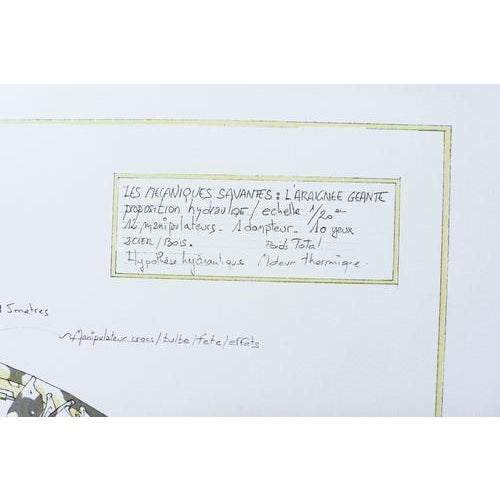 LES MECANIQUES SAVANTES: L'ARAIGNEE GEANTE
proposition hydraulique / echelle 1/20ème
12 manipulateurs - 1 dompteur - 10 yeux
ACIER / BOIS. Poids Total
Hypothèse hydraulique Moteur thermique.
5 metres
Manipulateur crocs / bulbe / tete / effets